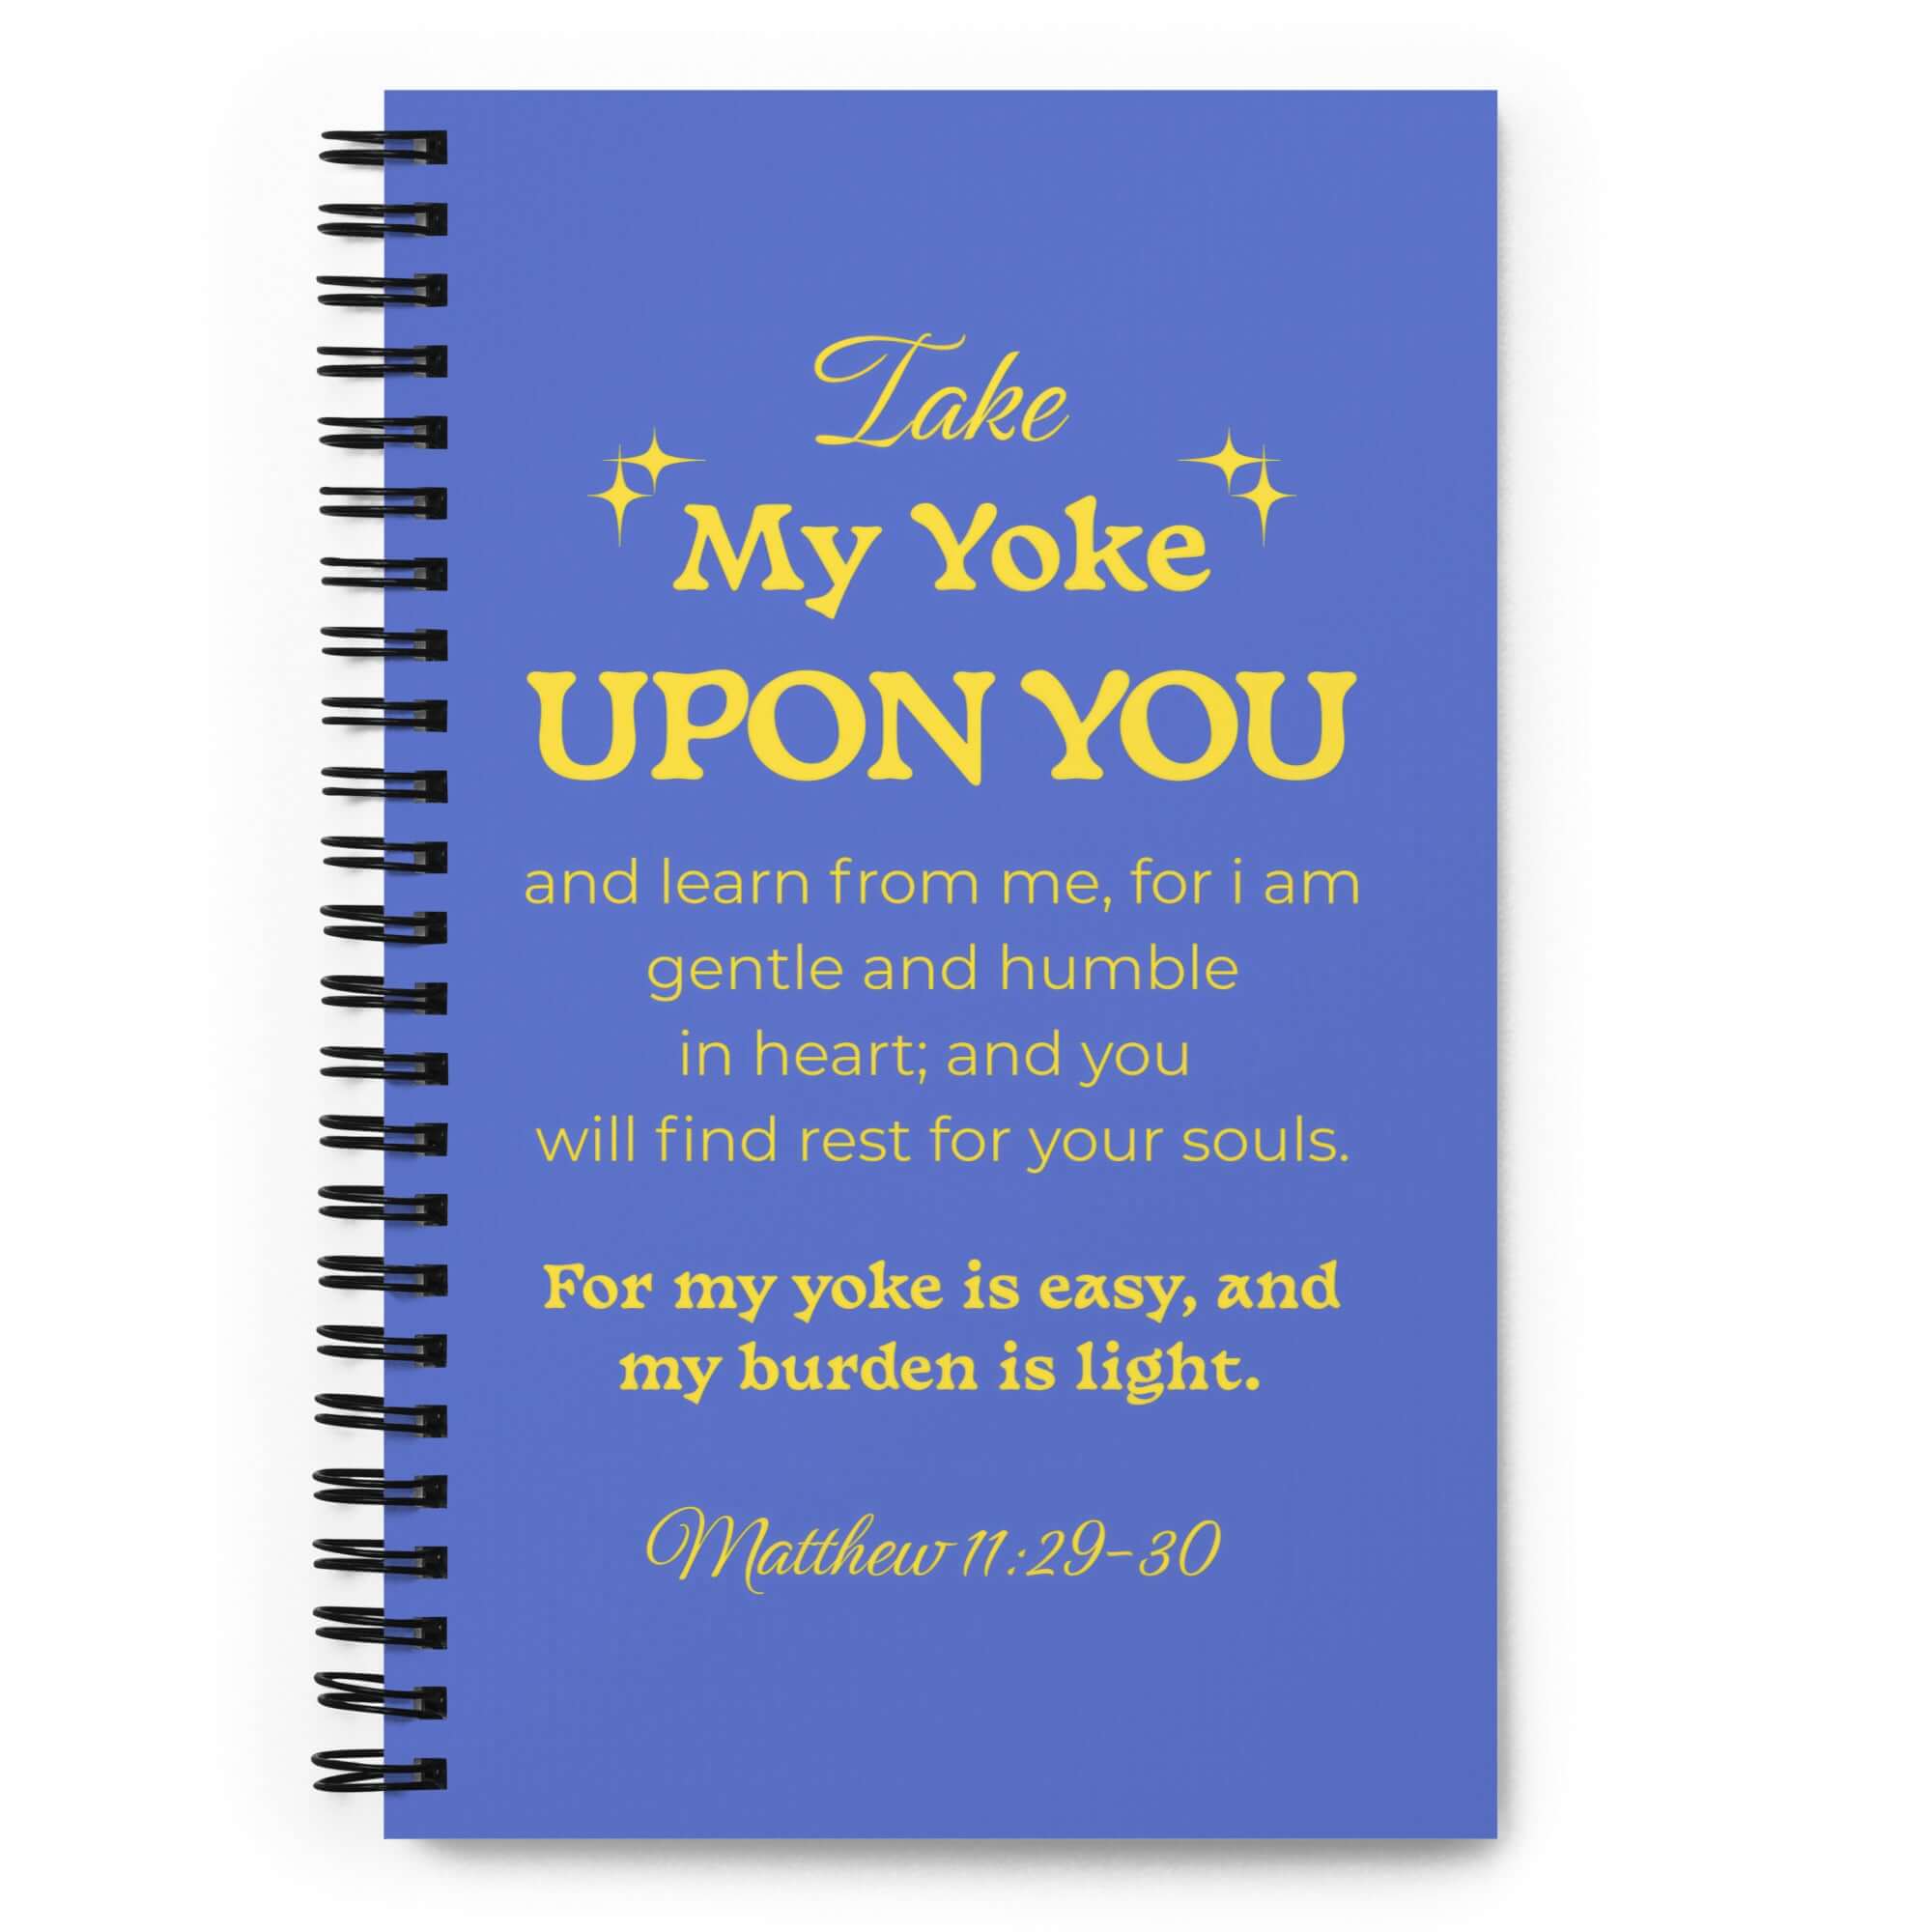 Take
My Yoke
UPON YOU
and learn from me, for i am
gentle and humble
in heart; and you
will find rest for your souls.
For my yoke is easy, and
my burden is light.
Matthew 11:29-30